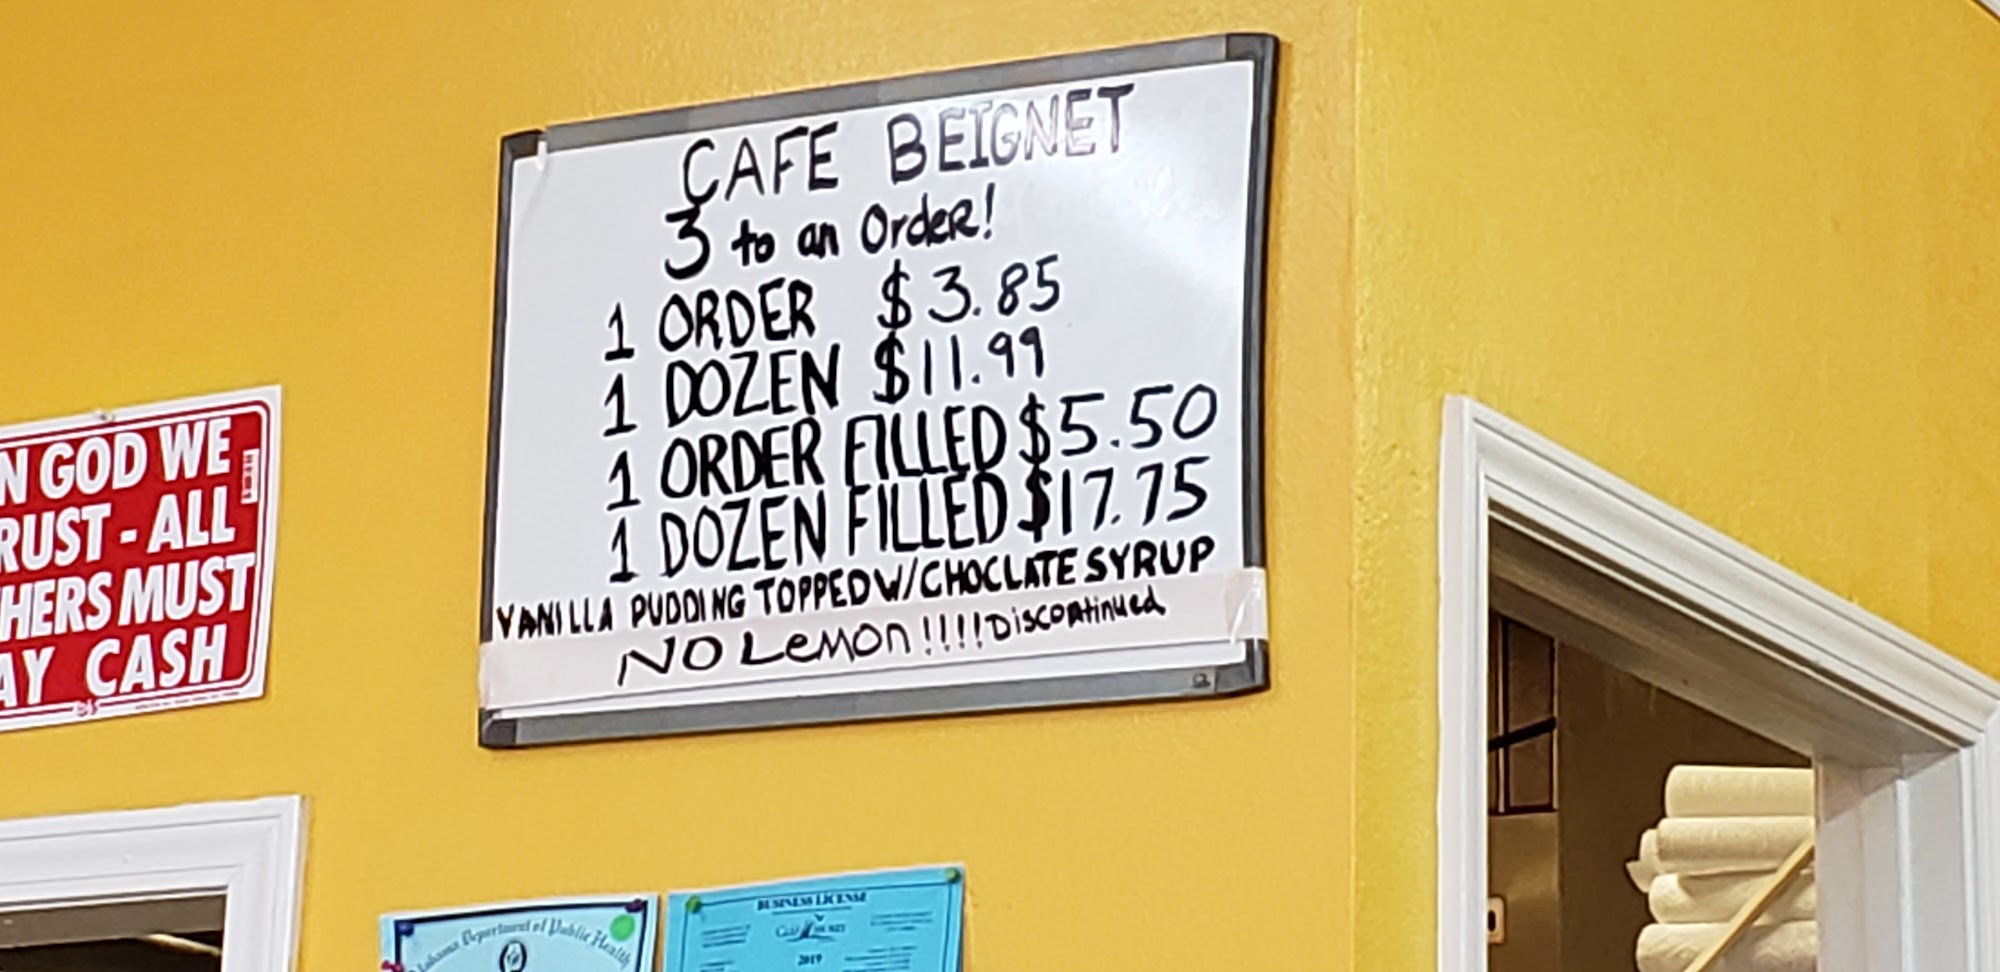 CAFE BEIGNET
3 to an Order!
1 ORDER $3.85
1 DOZEN $11.99
1 ORDER FILLED $5.50
1 DOZEN FILLED $17.75
VANILLA PUDDING TOPPED W/CHOCLATE SYRUP
NO Lemon!!!! Discontinued
N GOD WE
RUST - ALL
HERS MUST
AY CASH
Department of Public Health
BUSINESS LICENSE
2019